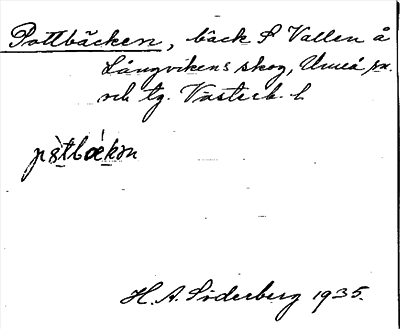 Pottbäcken, bäck S Vallen å
Långvikens skog, Umeå sn.
och tg. Västerb. l
pòtbǽkən
H. A. Söderberg 1935.